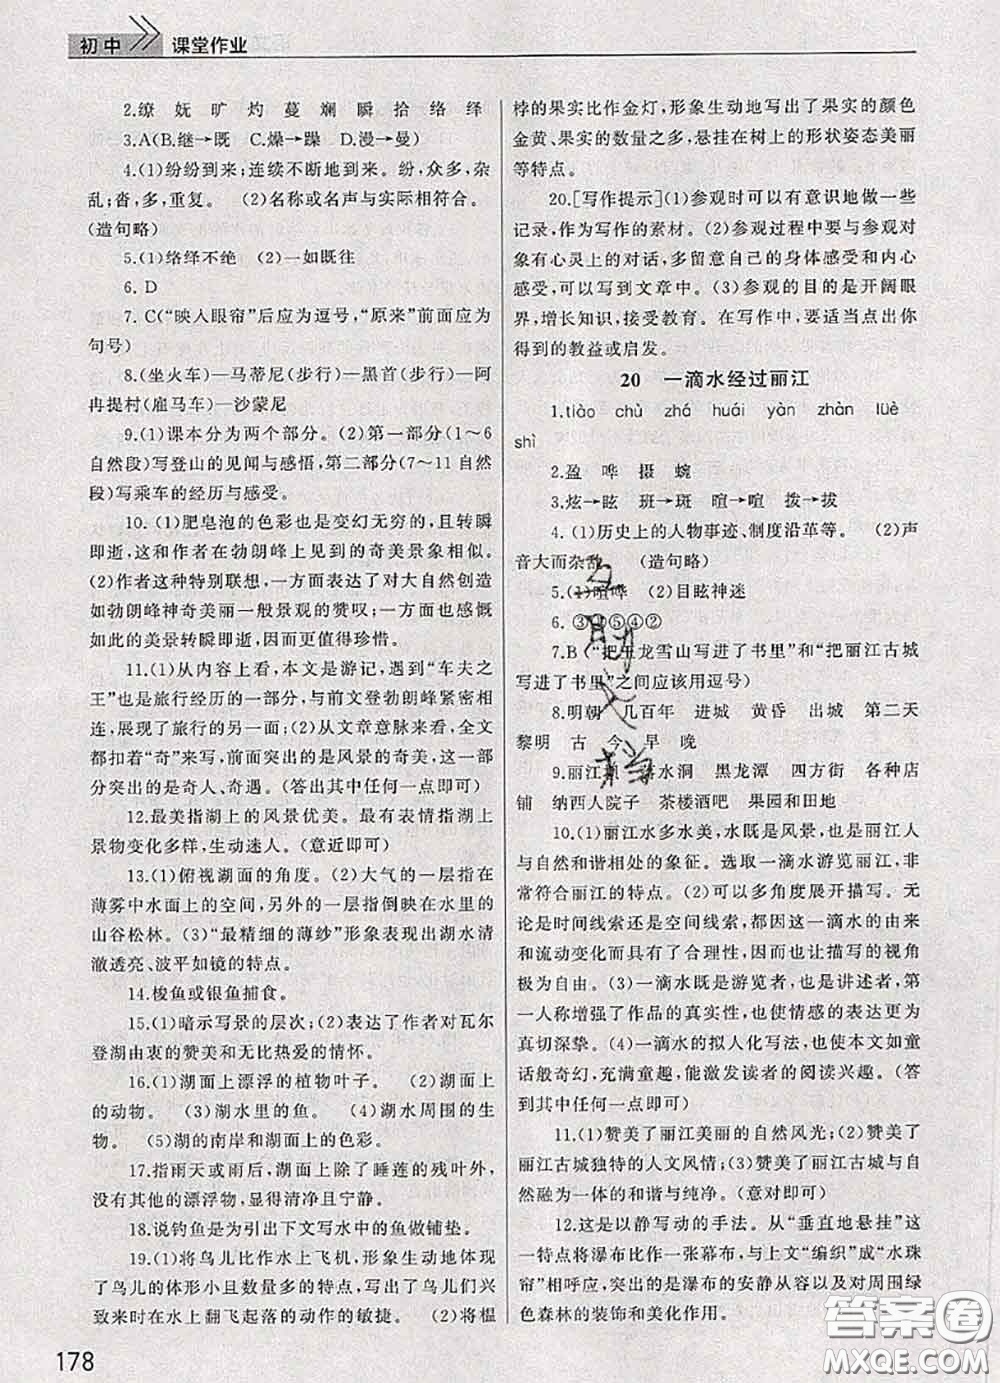 初中
课堂作业
2.缭 妩 旷 灼 蔓 斓 瞬 拾 络 绎
3.A(B.继→既 C.燥→躁 D.漫→曼)
4.(1)纷纷到来;连续不断地到来。纷,众多,杂
乱;沓,多,重复。 (2)名称或名声与实际相符合。
(造句略)
5.(1)络绎不绝 (2)一如既往
6. D
7. C(“映人眼帘”后应为逗号,“原来”前面应为
句号)
8.(坐火车)—马蒂尼(步行)—黑首(步行)—阿
冉提村(雇马车)—沙蒙尼
9.(1)课本分为两个部分。(2)第一部分(1～6
自然段)写登山的见闻与感悟,第二部分(7～11自然
段)写乘车的经历与感受。
10.(1)肥皂泡的色彩也是变幻无穷的,且转瞬
即逝,这和作者在勃朗峰上见到的奇美景象相似。
(2)作者这种特别联想,一方面表达了对大自然创造
如勃朗峰神奇美丽一般景观的赞叹;一方面也感慨
如此的美景转瞬即逝,因而更值得珍惜。
11.(1)从内容上看,本文是游记,遇到“车夫之
王”也是旅行经历的一部分,与前文登勃朗峰紧密相
连,展现了旅行的另一面;(2)从文章意脉来看,全文
都扣着“奇”来写,前面突出的是风景的奇美,这一部
分突出的是奇人、奇遇。(答出其中任何一点即可)
12.最美指湖上的风景优美。最有表情指湖上
景物变化多样,生动迷人。(意近即可)
13.(1)俯视湖面的角度。(2)大气的一层指在
薄雾中水面上的空间,另外的一层指倒映在水里的
山谷松林。(3)“最精细的薄纱”形象表现出湖水清
澈透亮、波平如镜的特点。
14.梭鱼或银鱼捕食。
15.(1)暗示写景的层次;(2)表达了作者对瓦尔
登湖由衷的赞美和无比热爱的情怀。
16.(1)湖面上漂浮的植物叶子。 (2)湖面上
的动物。 (3)湖水里的鱼。 (4)湖水周围的生
物。 (5)湖的南岸和湖面上的色彩。
17.指雨天或雨后,湖面上除了睡莲的残叶外,
没有其他的漂浮物,显得清洁且宁静。
18.说钓鱼是为引出下文写水中的鱼做铺垫。
19.(1)将鸟儿比作水上飞机,形象生动地体现
了鸟儿的体形小且数量多的特点,写出了鸟儿们兴
致来时在水上翻飞起落的动作的敏捷。(2)将榅
178
桲的果实比作金灯,形象生动地写出了果实的颜色
金黄、果实的数量之多,悬挂在树上的形状姿态美丽
等特点。
20.[写作提示](1)参观时可以有意识地做一些
记录,作为写作的素材。(2)参观过程中要与参观对
象有心灵上的对话,多留意自己的身体感受和内心
感受,可以写到文章中。(3)参观的目的是开阔眼
界,增长知识,接受教育。在写作中,要适当点出你
得到的教益或启发。
20 一滴水经过丽江
1.tiào chù zhá huái yàn zhàn lüè
shì
2.盈 哗 摄 蜿
3.炫→眩 班→斑 暄→喧 拨→拔
4.(1)历史上的人物事迹、制度沿革等。 (2)声
音大而杂乱 (造句略)
5.(1)喧哗 (2)目眩神迷
6.③①⑤④②
7.B(“把玉龙雪山写进了书里”和“把丽江古城
写进了书里”之间应该用逗号)
8.明朝 几百年 进城 黄昏 出城 第二天
黎明 古 今 早 晚
9.丽江坝 落水洞 黑龙潭 四方街 各种店
铺 纳西人院子 茶楼酒吧 果园和田地
10.(1)丽江水多水美,水既是风景,也是丽江人
与自然和谐相处的象征。选取一滴水游览丽江,非
常符合丽江的特点。(2)可以多角度展开描写。无
论是时间线索还是空间线索,都因一滴水的由来
和流动变化而具有了合理性,因而也让描写的视角
极为自由。(3)一滴水既是游览者,也是讲述者,第
一人称增强了作品的真实性,也使情感的表达更为
真切深挚。(4)一滴水的拟人化写法,也使本文如童
话般奇幻,充满童趣,能激发读者的阅读兴趣。(答
到其中任何一点即可)
11.(1)赞美了丽江美丽的自然风光;(2)赞美了
丽江古城独特的人文风情;(3)赞美了丽江古城与自
然融为一体的和谐与纯净。(意对即可)
12.这是以静写动的手法。从“垂直地悬挂”这
一特点将瀑布比作一张幕布,与上文“编织”或“水珠
帘”相呼应,突出的是瀑布的安静从容以及对周围绿
色森林的装饰和美化作用。
答案圈
MXQE.COM